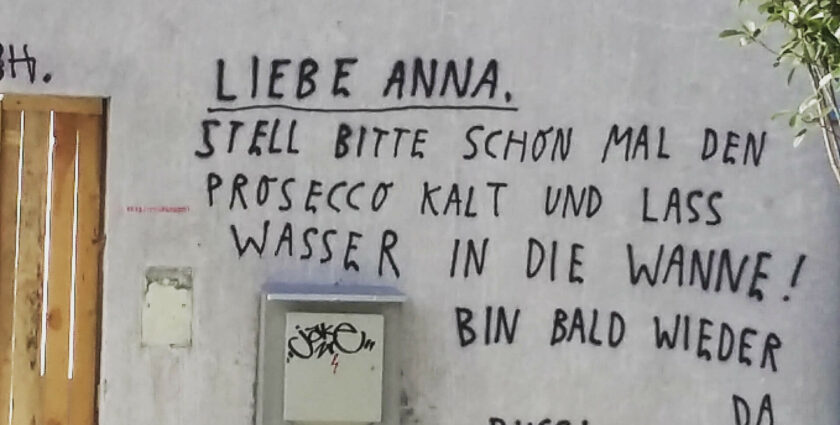 LIEBE ANNA.
STELL BITTE SCHON MAL DEN
PROSECCO KALT UND LASS
WASSER IN DIE WANNE!
BIN BALD WIEDER
DA
jake
4